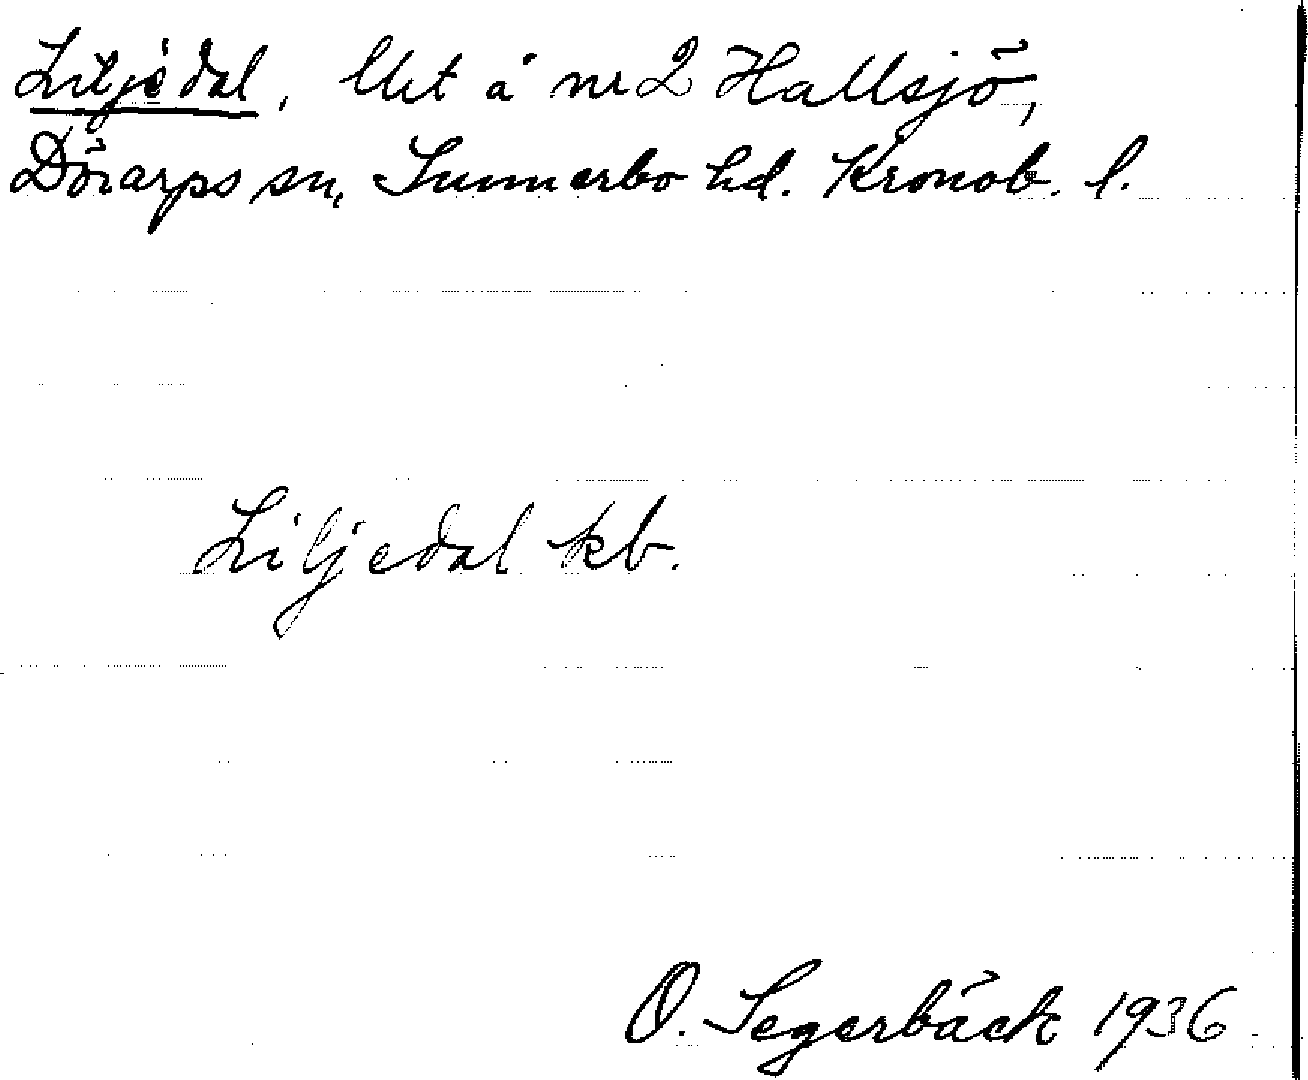 Liljedal, Utet å nr 2 Hallsjö,
Dörarps sn, Sunnerbo hd. Kronob. l.
Liljedal kb.
O. Segerbäck 1936